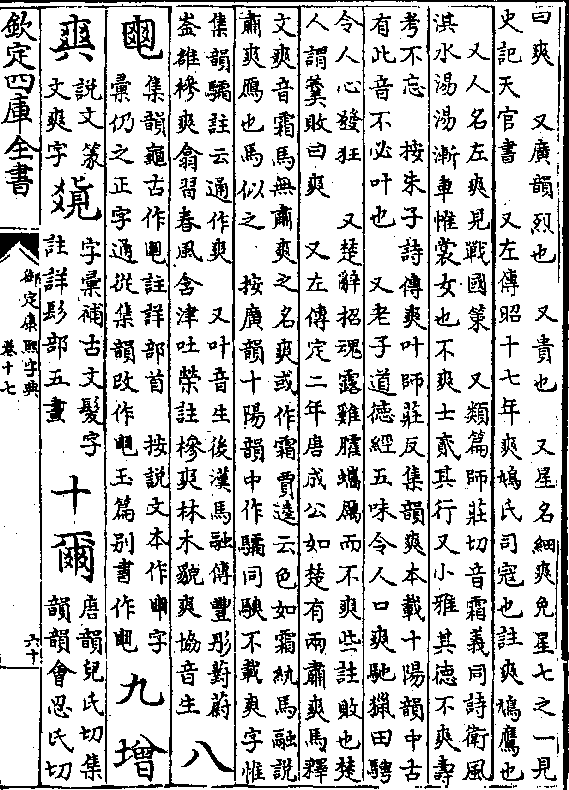 曰爽 又廣韻烈也 又貴也 又星名細爽免星七之一見
史記天官書 又左傳昭十七年爽鳩氏司寇也註爽鳩鷹也
又人名左爽見戰國策 又類篇師莊切音霜義同詩衛風
淇水湯湯漸車帷裳女也不爽士貳其行又小雅其德不爽壽
考不忘 按朱子詩傳爽叶師莊反集韻爽本載十陽韻中古
有此音不必叶也 又老子道德經五味令人口爽馳獵田騁
令人心發狂 又楚辭招魂露雞臛蠵厲而不爽些註敗也楚
人謂羮敗曰爽 又左傳定二年唐成公如楚有兩肅爽馬釋
文爽音霜馬無肅爽之名爽或作霜賈逵云色如霜紈馬融說
肅爽鴈也馬似之 按廣韻十陽韻中作驦同騻不載爽字惟
集韻驦註云通作爽 又叶音生後漢馬融傳豐彤薱蔚
崟槮爽翕習春風含津吐榮註槮爽林木貌爽協音生
八
集韻龜古作註詳部首 按說文本作字
彙仍之正字通從集韻改作玉篇別書作
九增
說文篆
文爽字
字彙補古文髮字
註詳髟部五畫
十爾
唐韻兒氏切集
韻韻會忍氏切
欽定四庫全書
御定康熙字典
卷十七
六十